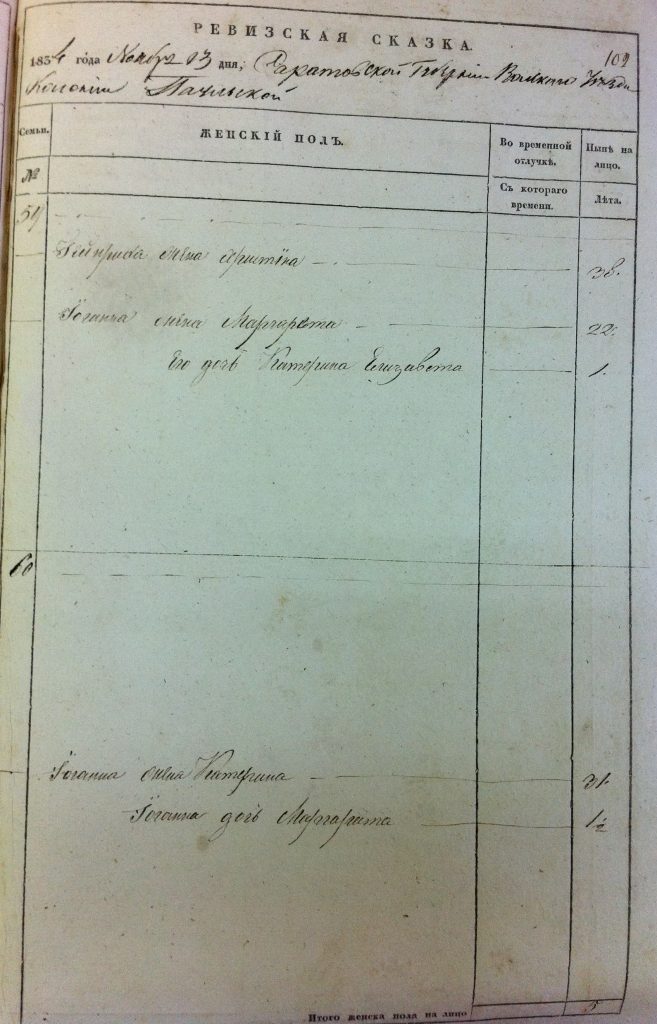 РЕВИЗСКАЯ СКАЗКА.
109
1834 года Ноября 13 дня, Саратовской Губернии Волскаго Уезда
Колонии Паульской
Семьи.
ЖЕНСКІЙ ПОЛЪ.
Во временной отлучкѣ.
Нынѣ на лицо.
№
Съ котораго времени.
Лѣта.
59
жена 38.
Іоганна жена Маргарета 22.
Его дочь Катерина Елизавета 1.
60
Іоганна жена Катерина 31.
Іоганна дочь Маргарета 1½
Итого женска пола на лицо 5